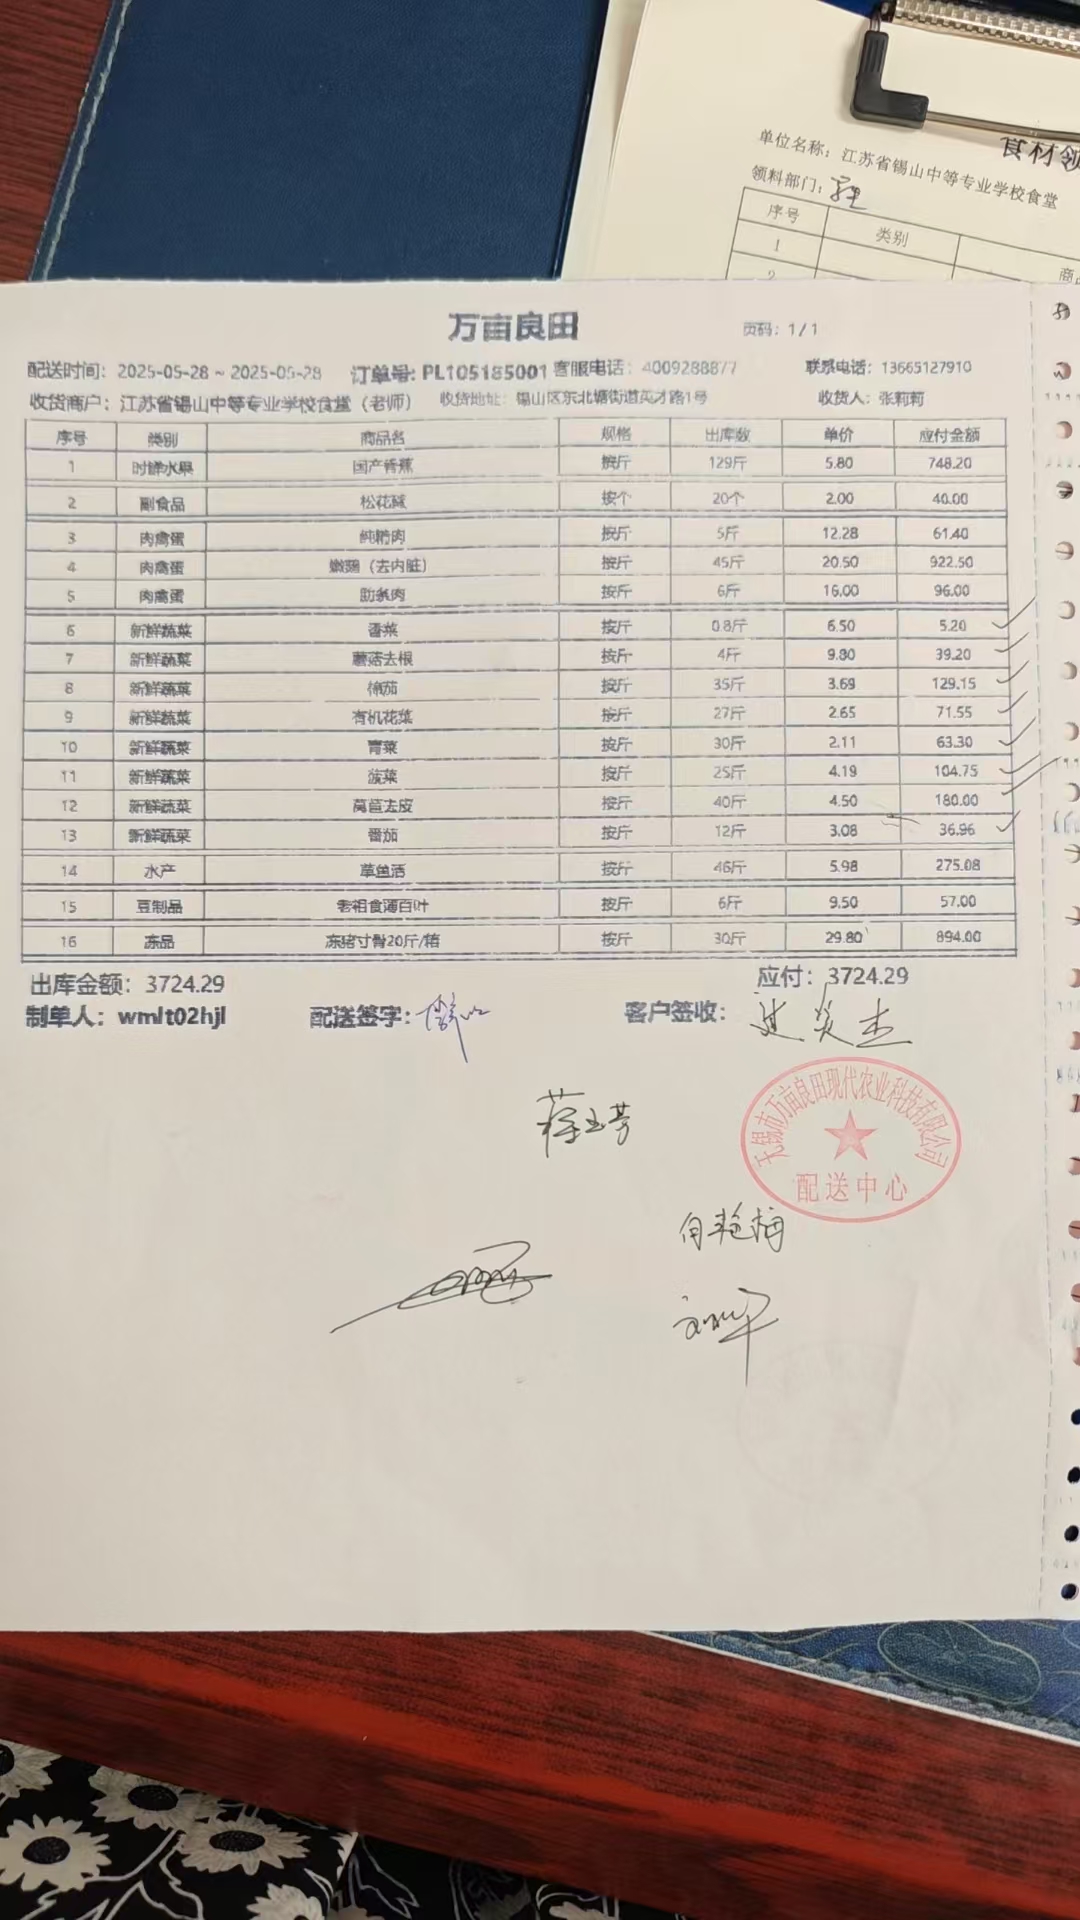 食材领
单位名称：江苏省锡山中等专业学校食堂
领料部门：
序号 类别 商
1
2
万亩良田
页码：1/1
配送时间：2025-05-28 ~ 2025-05-28 订单号: PL105185001 客服电话：4009288877 联系电话：13665127910
收货商户：江苏省锡山中等专业学校食堂（老师） 收货地址：锡山区东北塘街道英才路1号 收货人：张莉莉
序号 类别 商品名 规格 出库数 单价 应付金额
1 时鲜水果 国产香蕉 按斤 129斤 5.80 748.20
2 副食品 松花蛋 按个 20个 2.00 40.00
3 肉禽蛋 纯精肉 按斤 5斤 12.28 61.40
4 肉禽蛋 嫩鹅（去内脏） 按斤 45斤 20.50 922.50
5 肉禽蛋 肋条肉 按斤 6斤 16.00 96.00
6 新鲜蔬菜 香菜 按斤 0.8斤 6.50 5.20
7 新鲜蔬菜 蘑菇去根 按斤 4斤 9.80 39.20
8 新鲜蔬菜 柿茄 按斤 35斤 3.69 129.15
9 新鲜蔬菜 有机花菜 按斤 27斤 2.65 71.55
10 新鲜蔬菜 青菜 按斤 30斤 2.11 63.30
11 新鲜蔬菜 菠菜 按斤 25斤 4.19 104.75
12 新鲜蔬菜 莴苣去皮 按斤 40斤 4.50 180.00
13 新鲜蔬菜 番茄 按斤 12斤 3.08 36.96
14 水产 草鱼活 按斤 46斤 5.98 275.08
15 豆制品 老祖食薄百叶 按斤 6斤 9.50 57.00
16 冻品 冻猪寸骨20斤/箱 按斤 30斤 29.80 894.00
出库金额：3724.29 应付：3724.29
制单人：wmlt02hjl 配送签字： 客户签收：
无锡市万亩良田现代农业科技有限公司
配送中心